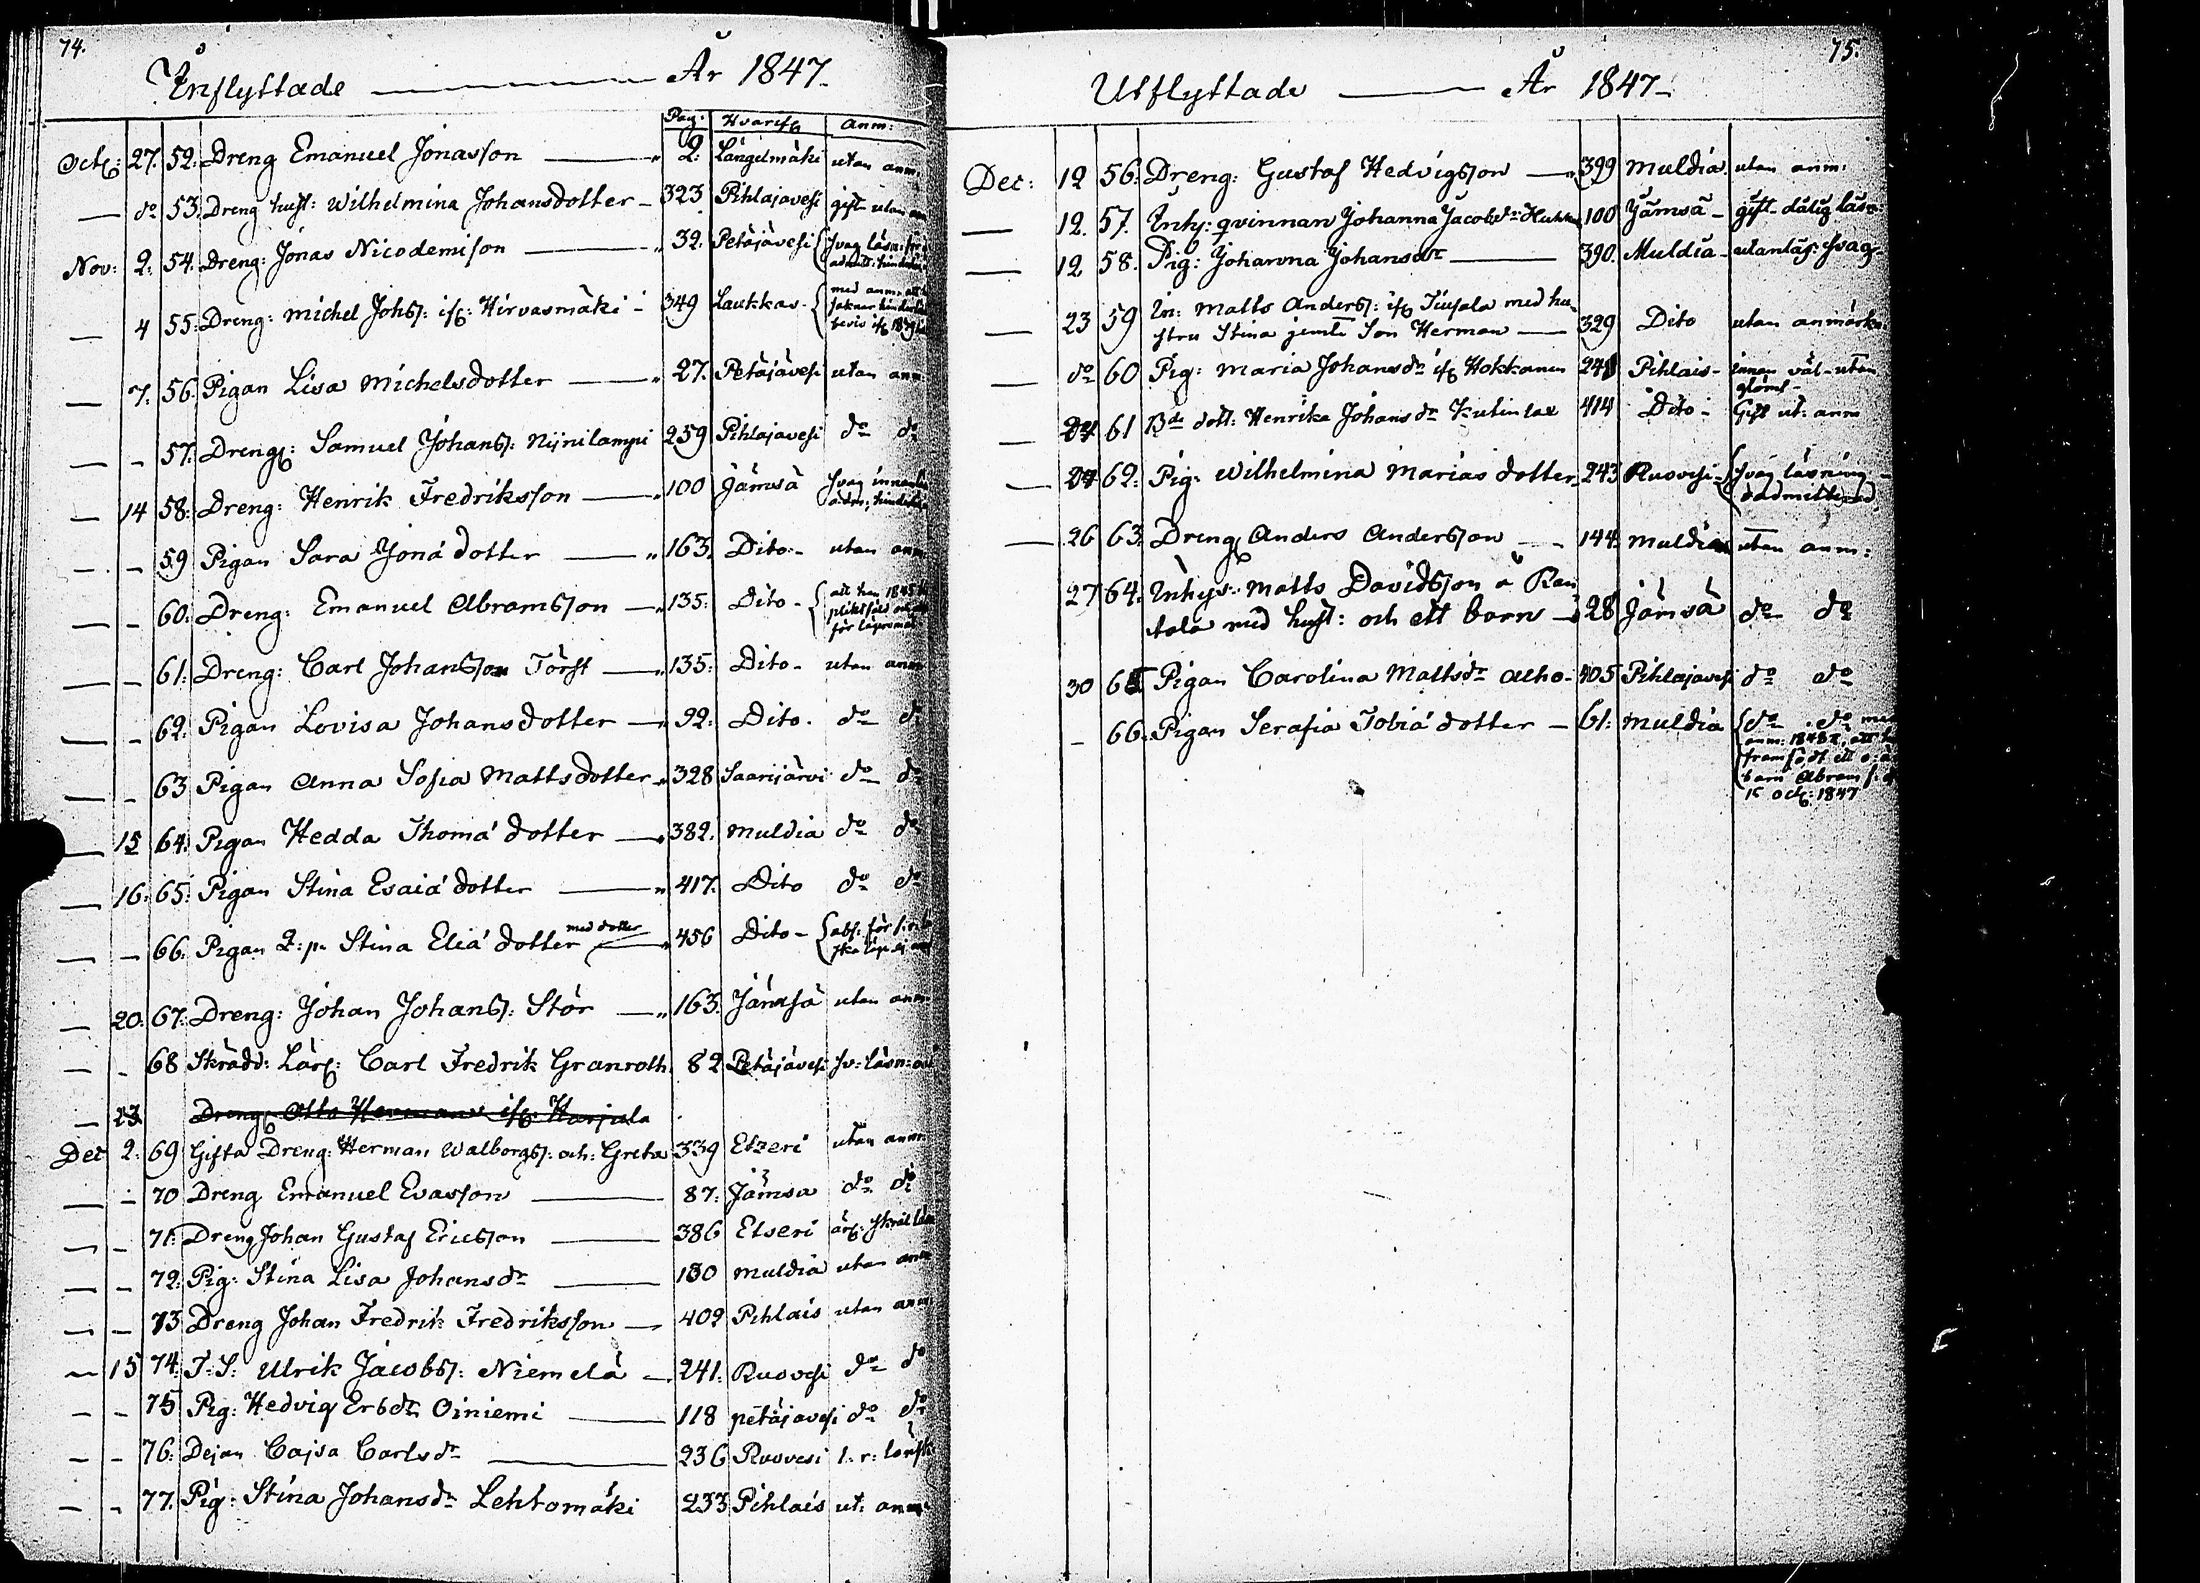 74.
Inflyttade År 1847.
Pag: Hvarifr. Anm:
Octr: 27. 52. Dreng Emanuel Jonasson 2. Längelmäki utan anm:
— do 53. Dreng hust: Wilhelmina Johansdotter 323 Pihlajavesi gift utan
Nov: 2. 54. Dreng: Jonas Nicodemison 32. Petäjävesi svag läsn:
— 4 55. Dreng: Michel Johss: ifr: Hirvasmäki 349 Laukkas med anm:
— 7. 56. Pigan Lisa Michelsdotter 27. Petäjävesi utan anm:
— - 57. Dreng: Samuel Johans: Nijnilampi 259 Pihlajavesi do do
— 14 58. Dreng: Henrik Fredriksson 100 Jämsä svag
— - 59 Pigan Sara Jonædotter 163. Dito - utan anm
— - 60. Dreng: Emanuel Abramsson 135. Dito -
— - 61. Dreng: Carl Johansson Törst 135. Dito - utan anm
— - 62. Pigan Lovisa Johansdotter 92. Dito. do do
— - 63 Pigan Anna Sofia Mattsdotter 328 Saarijärvi do do
— 15 64. Pigan Hedda Thomædotter 382. Muldia do do
— 16. 65. Pigan Stina Esaiædotter 417. Dito do do
— - 66. Pigan 2: pr Stina Eliædotter med dotter 456 Dito -
— 20. 67. Dreng: Johan Johans: Stör 163. Jämsä utan anm
— - 68 Skrädd: Lärl: Carl Fredrik Granroth 82 Petäjävesi sv: läsn:
— 23. Dreng Otto Hermans ifr Harjula
Dec 2. 69 Gifta Dreng: Herman Walborgs: och: Greta 339 Etzeri utan anm:
— - 70 Dreng Emanuel Evasson 87. Jämsä do do
— - 71. Dreng Johan Gustaf Ericsson 386 Etseri
— - 72. Pig: Stina Lisa Johansdr 130 Muldia utan anm
— - 73 Dreng Johan Fredrik Fredriksson 402 Pihlais utan anm:
— 15 74. T: S: Ulrik Jacobs: Niemelä 241. Ruovesi do do
- - 75 Pig: Hedvig Ersdr Oiniemi 118 petäjävesi do do
- - 76. Dejan Cajsa Carlsdr 236 Ruovesi
- - 77. Pig: Stina Johansdr Lehtomäki 233 Pihlais ut: anm:
75.
Utflyttade År 1847.
Dec: 12 56. Dreng: Gustaf Hedvigsson 399 Muldia. utan anm:
— 12. 57. Inhy: qvinnan Johanna Jacobsdr 100 Jämsä - gift - dålig läsn:
— 12 58. Pig: Johanna Johansdtr 390. Muldia - utanläs: svag -
— 23 59 In: Matts Anders: ifr Tiusala med hu-
stru Stina jemte Son Herman 329 Dito utan anmärkn
— do 60 Pig: Maria Johansdr ifr Hokkanen 248 Pihlais - innan väl - utan
glömt -
— 24 61 Bde dott: Henrika Johansdr Kutinlax 414 Dito - Gift ut: anm
— 24 62. Pig: Wilhelmina Mariasdotter 243 Ruovesi svag läsning -
— 26 63. Dreng Anders Andersson 144. Muldia utan anm:
27 64. Inhys: Matts Davidsson å Ran
tala med hust: och ett barn 28 Jämsä do do
30 65 Pigan Carolina Mattsdr Alho - 405 Pihlajavesi do do
- 66. Pigan Serafia Tobiædotter 61. Muldia do do med
anm: 1848
framfödt ett
barn Abram
15 Oct: 1847